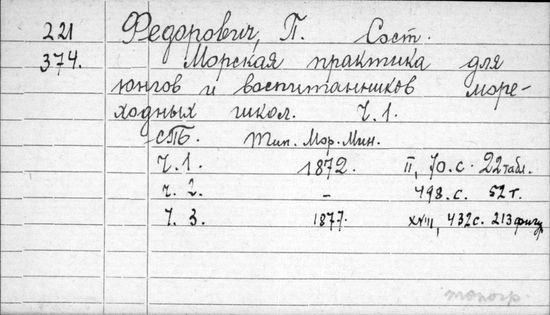 221 Федорович, П. Сост.
374. Морская практика для
юнгов и воспитанников море-
ходных школ. Ч.1.
СПБ. Тип. Мор. Мин.
Ч.1. 1872. II, 70.с. 22 табл.
ч. 2. - 498.с. 52 т.
Ч. 3. 1877. XVIII, 432с. 213 фигур
топогр.